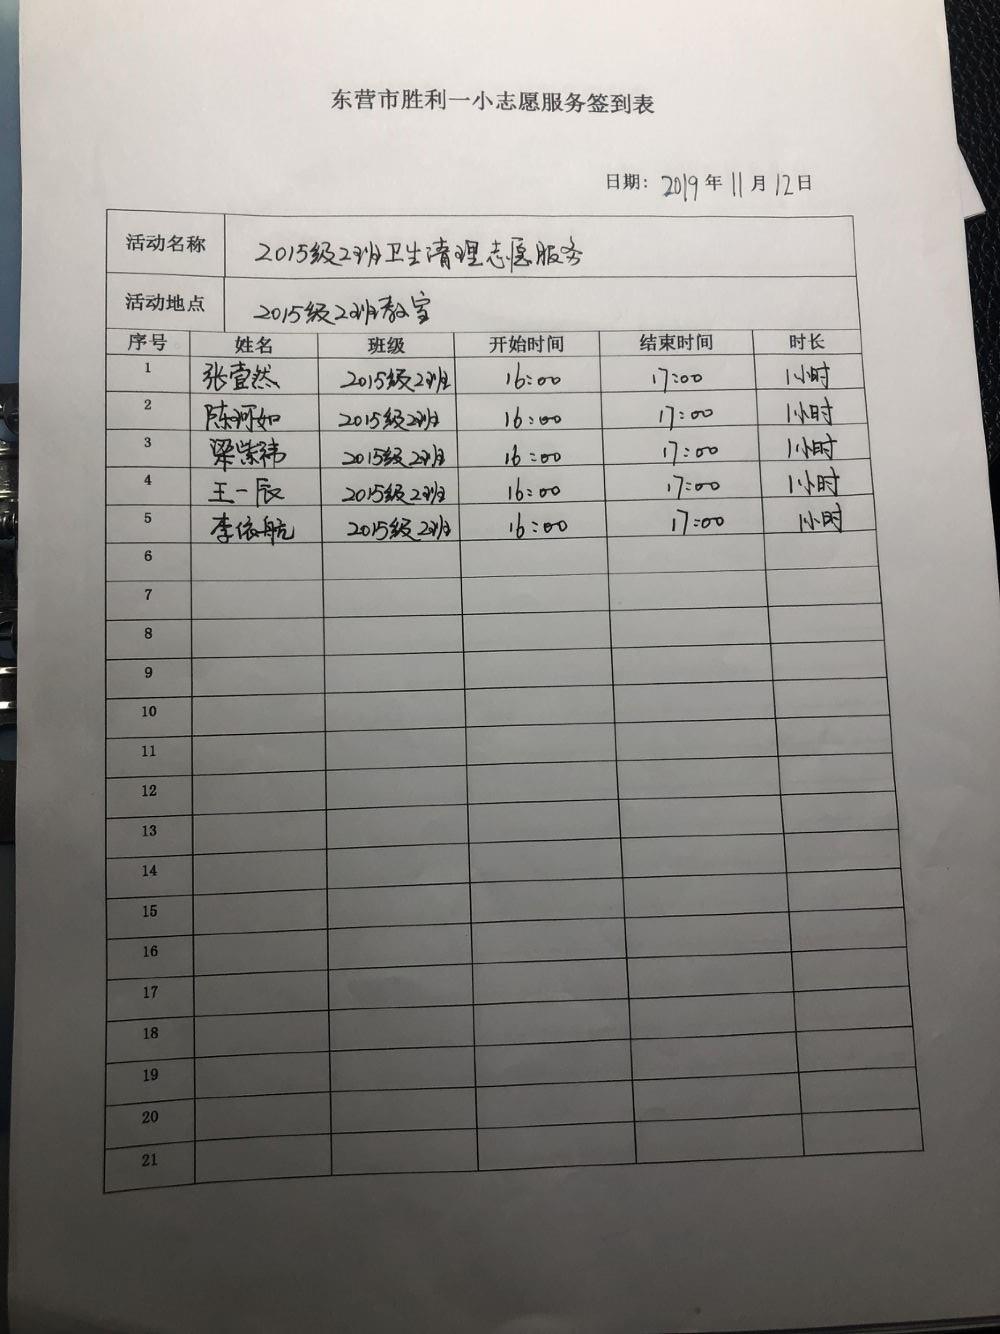 东营市胜利一小志愿服务签到表
日期：2019年11月12日
活动名称 2015级2班卫生清理志愿服务
活动地点 2015级2班教室
序号 姓名 班级 开始时间 结束时间 时长
1 张壹然 2015级2班 16:00 17:00 1小时
2 陈珂如 2015级2班 16:00 17:00 1小时
3 梁紫祎 2015级2班 16:00 17:00 1小时
4 王一辰 2015级2班 16:00 17:00 1小时
5 李依航 2015级2班 16:00 17:00 1小时
6
7
8
9
10
11
12
13
14
15
16
17
18
19
20
21